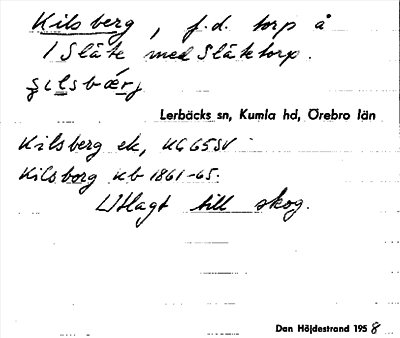 Kilsberg, f.d. torp å
1 Släte med Släktorp.
Lerbäcks sn, Kumla hd, Örebro län
Kilsberg ek, KG65SV
Kilsborg kb 1861-65.
Utlagt till skog.
Dan Höjdestrand 1958